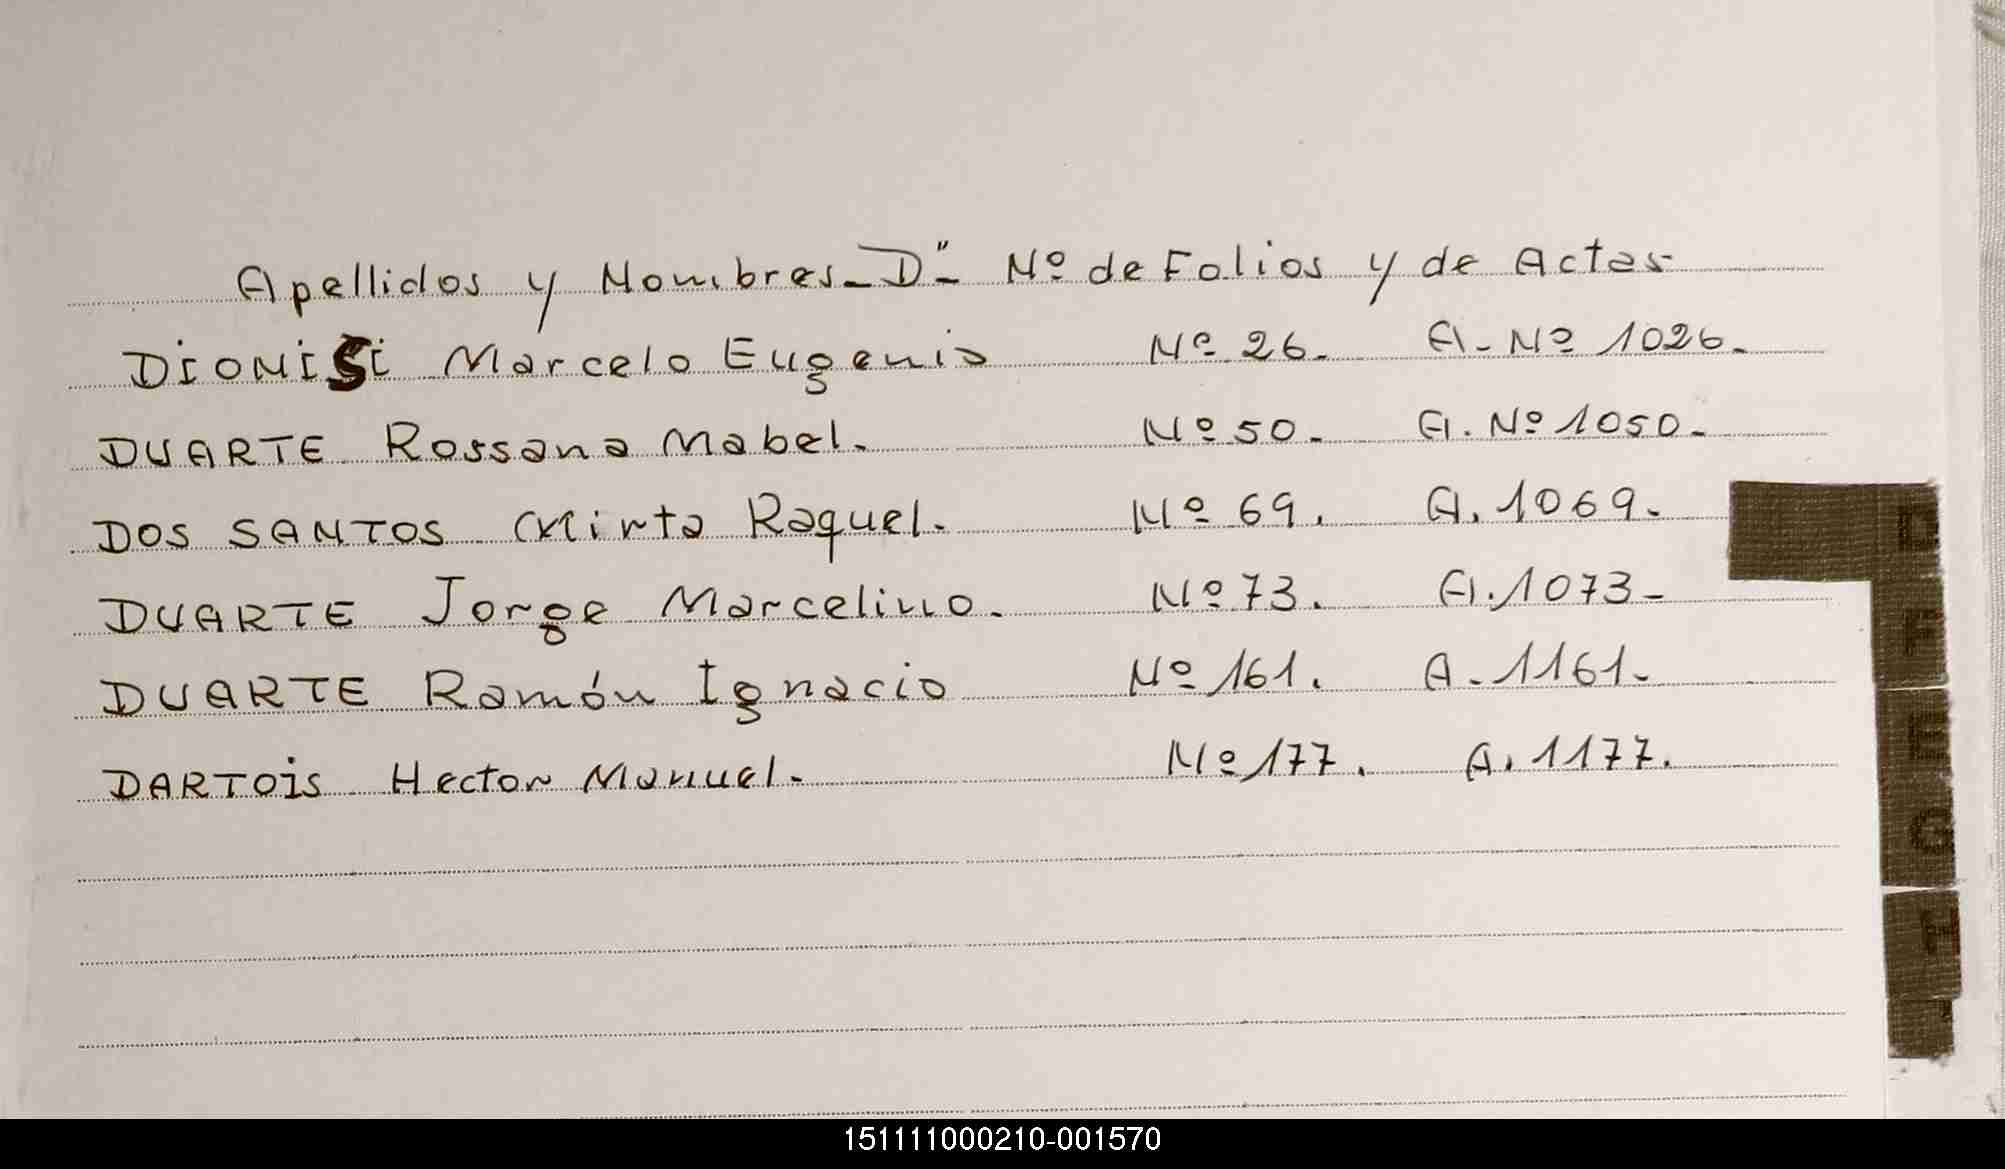 Apellidos y Nombres_D"_ Nº de Folios y de Actas
DIONISI Marcelo Eugenio Nº 26. A-Nº 1026.
DUARTE Rossana Mabel. Nº 50. A.Nº 1050.
DOS SANTOS Mirta Raquel. Nº 69. A. 1069.
DUARTE Jorge Marcelino. Nº 73. A. 1073-
DUARTE Ramón Ignacio Nº 161. A. 1161.
DARTOIS Hector Manuel. Nº 177. A. 1177.
D
F
E
G
H
151111000210-001570